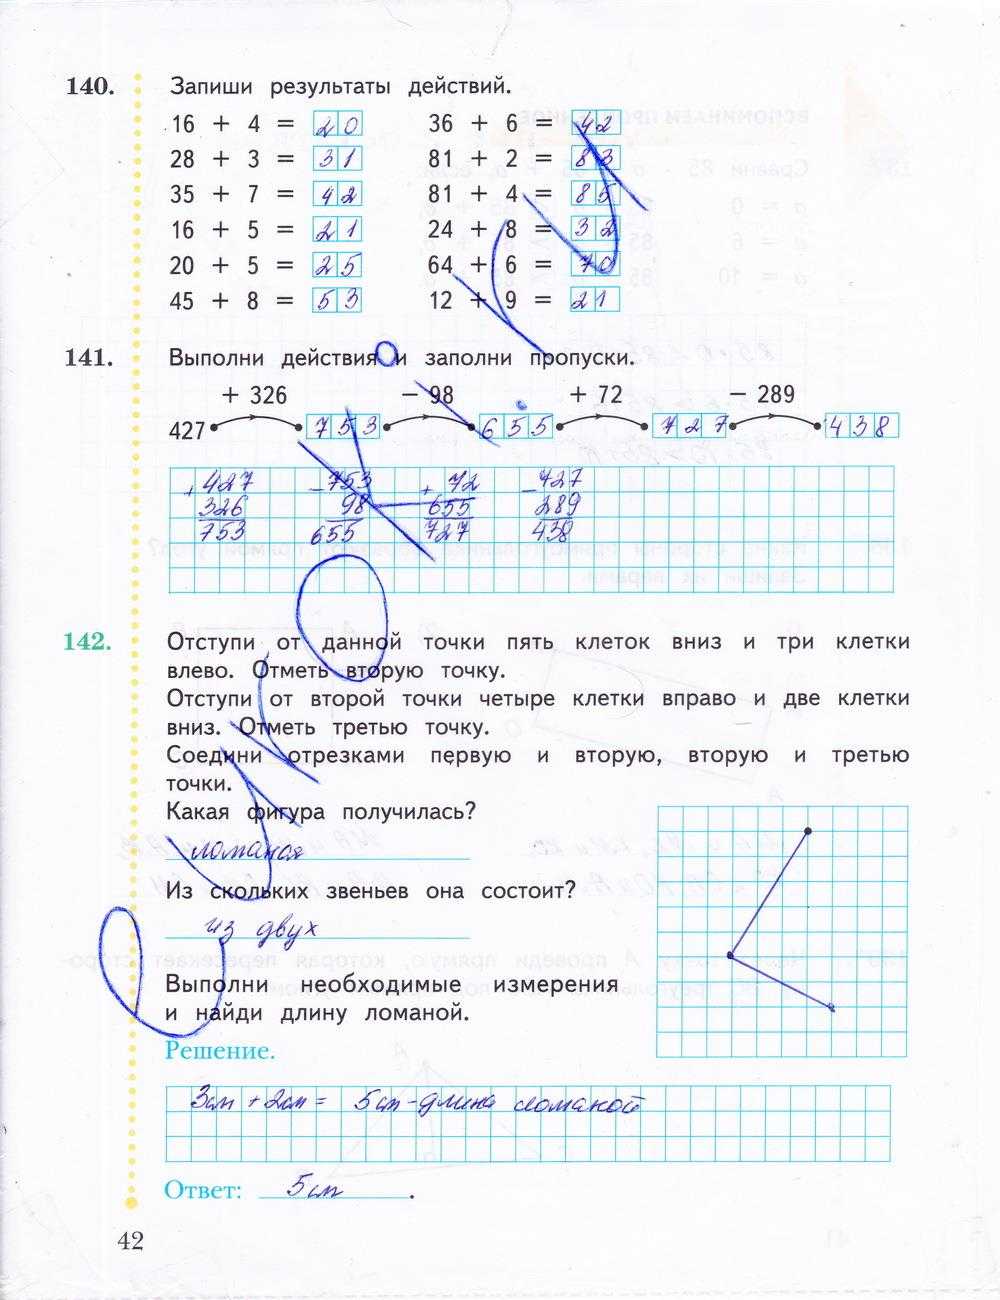 140. Запиши результаты действий.
16 + 4 = 20 36 + 6 = 42
28 + 3 = 31 81 + 2 = 83
35 + 7 = 42 81 + 4 = 85
16 + 5 = 21 24 + 8 = 32
20 + 5 = 25 64 + 6 = 70
45 + 8 = 53 12 + 9 = 21
141. Выполни действия и заполни пропуски.
+ 326 − 98 + 72 − 289
427 753 655 727 438
+ 427 − 753 + 72 − 727
326 98 655 289
753 655 727 438
142. Отступи от данной точки пять клеток вниз и три клетки
влево. Отметь вторую точку.
Отступи от второй точки четыре клетки вправо и две клетки
вниз. Отметь третью точку.
Соедини отрезками первую и вторую, вторую и третью
точки.
Какая фигура получилась?
ломаная
Из скольких звеньев она состоит?
из двух
Выполни необходимые измерения
и найди длину ломаной.
Решение.
3см + 2см = 5см - длина ломаной
Ответ: 5см.
42